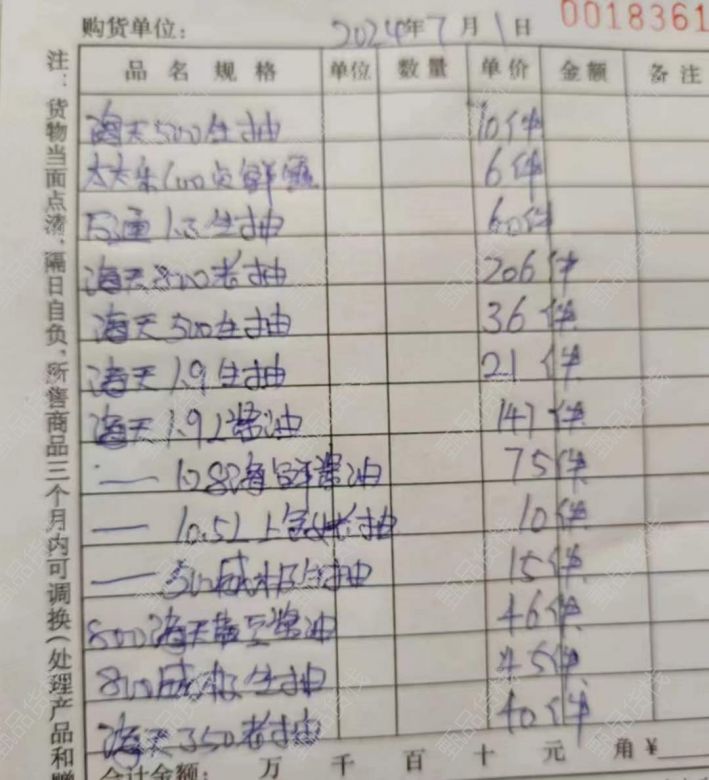 0018361
购货单位： 2024年7月1日
品名规格 单位 数量 单价 金额 备注
海天500生抽 10件
太太乐 6件
1.3生抽 60件
海天800老抽 206件
海天500生抽 36件
海天1.9生抽 21件
海天1.9L酱油 147件
— 海鲜酱油 75件
— 10.5L上 老抽 10件
— 500威极生抽 15件
800海天 酱油 46件
800威极生抽 45件
海天350老抽 40件
合计金额： 万 千 百 十 元 角 ¥
注：货物当面点清，隔日自负，所售商品三个月内可调换（处理产品和赠